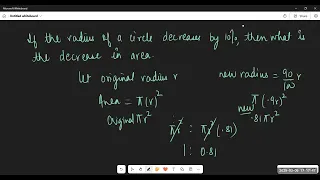 Microsoft Whiteboard
Untitled whiteboard
If the radius of a circle decrease by 10%, then what is
the decrease in area.
let original radius r
new radius = 90/100 r
Area = π(r)²
Original πr²
new π(.9r)²
.81πr²
πr² : πr²(.81)
1 : 0.81